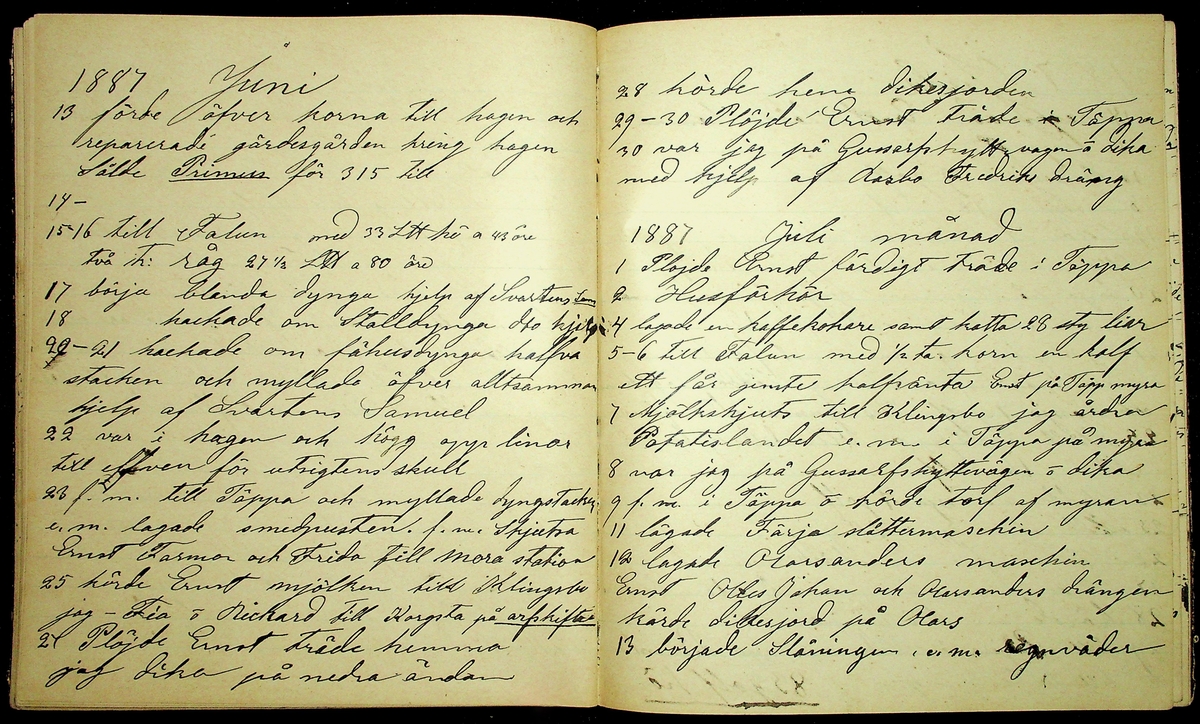 1887 Juni
13 förde öfver korna till hagen och
reparerade gärdesgården kring hagen
Sålde Primus för 315 till
14 –
15-16 till Falun med 33 LH hö a 43 öre
två t: råg 27 1/2 LH a 80 öre
17 börja blanda dynga hjelp af Svartens Sam
18 hackade om Stalldynga dto hjelp
20 – 21 hackade om fähusdynga halfva
stacken och myllade öfver alltsamman
hjelp af Svartens Samuel
22 var i hagen och högg opp linor
till elfven för utsigtens skull
23 f. m. till Täppa och myllade dyngstacken
e. m. lagade smedpusten. f. m. Skjutsa
Ernst Farmor och Frida till Mora station
25 körde Ernst mjölken till Klingsbo
jag – Fia o Rickard till Korgsta på arfskifte
27 Plöjde Ernst träde hemma
jag dika på nedra ändan
28 körde hem dikesjorden
29 – 30 Plöjde Ernst träde i Täppa
30 var jag på Gussarfshyttvägen o dika
med hjelp af Fredriks dräng
1887 Juli månad
1 Plöjde Ernst färdigt träde i Täppa
2 Husförhör
4 lagade en kaffekokare samt katta 28 sty liar
5-6 till Falun med 1/2 ta. korn en kalf
ett får jemte halfränta Ernst på Täpp myra
7 Mjölkskjuts till Klingsbo jag årdra
Potatislandet e. m. i Täppa på myra
8 var jag på Gussarfshyttevägen o dika
9 f. m. i Täppa o körde torf af myran
11 lagade Färja slåttermaschin
12 lagade Olarsanders maschin
Ernst Olles Johan och Olarsanders drängen
körde dikesjord på Olars
13 började Slåningen. e. m. regnväder